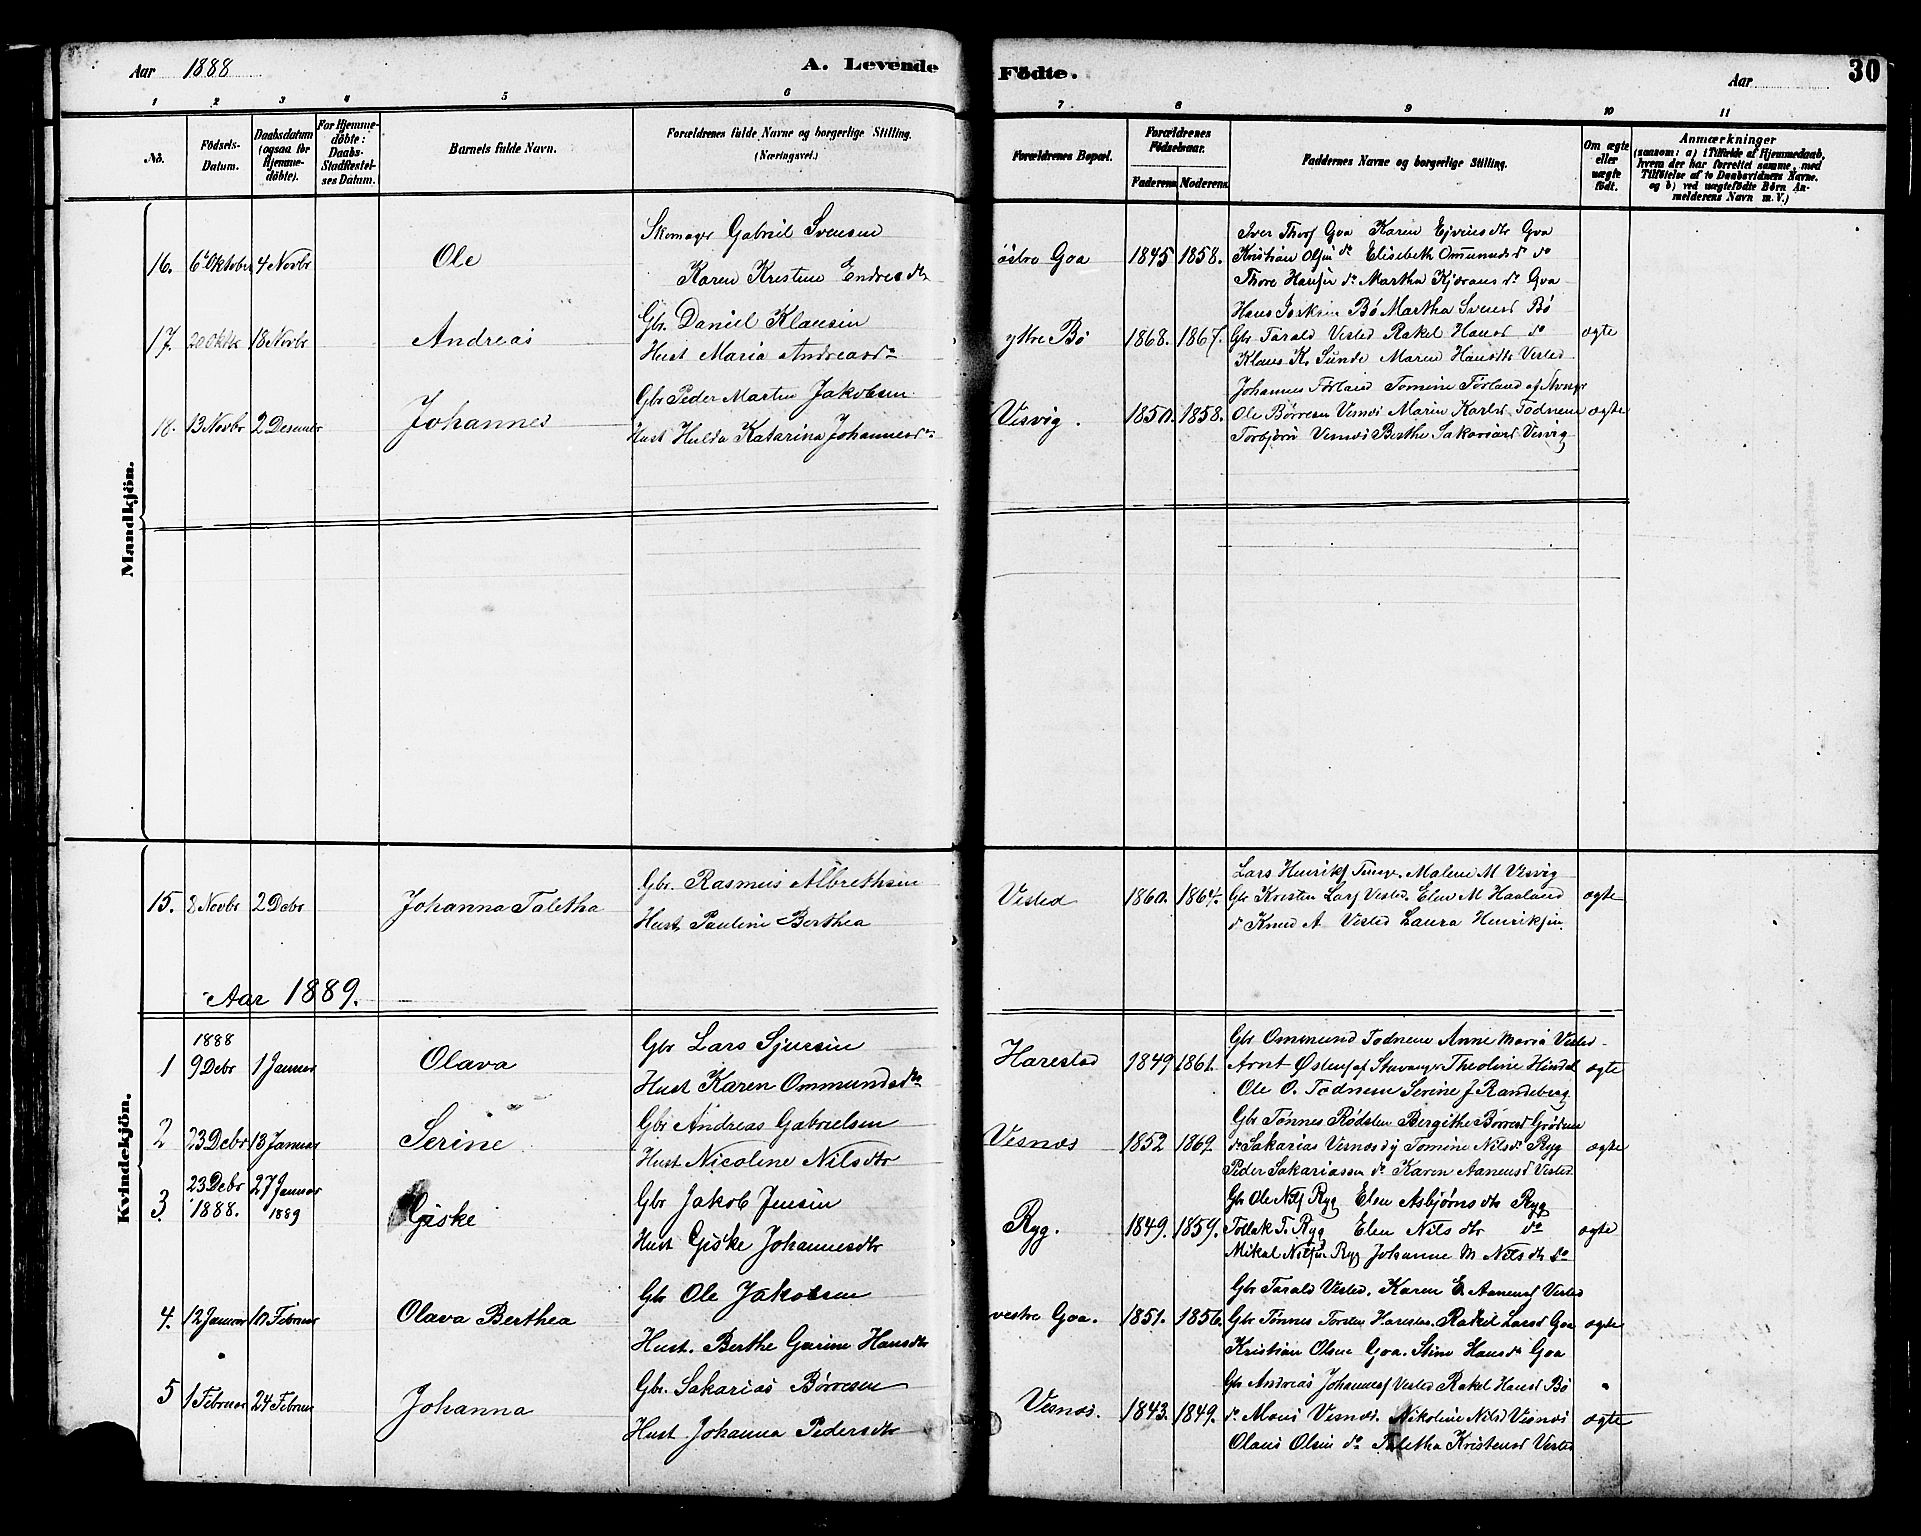 Aar 1888
A. Levende Fødte.
Aar
30
1 2 3 4 5 6 7 8 9 10 11
No.
Födsels-Datum.
Daabsdatum (ogsaa for Hjemmedöbte).
For Hjemmedöbte: Daabs-Stadfæstelses Datum.
Barnets fulde Navn.
Forældrenes fulde Navne og borgerlige Stilling. (Næringsvei.)
Forældrenes Bopæl.
Forældrenes Fødselsaar.
Faderens. Moderens.
Faddernes Navne og borgerlige Stilling.
Om ægte eller uægte født.
Anmærkninger
(saasom: a) i Tilfælde af Hjemmedaab, hvem der har forrettet samme, med Tilföielse af to Daabsvidners Navne. og b) ved uægtefödte Börn Anmelderens Navn m. V.)
Mandkjön.
16. 6 Oktober 4 Novbr Ole
Skomager Gabriel Svensen
Karen Kristine Endresdtr
østre Goa 1845 1858.
Iver Thors Goa Karen Ejvinsdtr Goa
Kristian Olsen do Elisabeth Omunds do
Thore Hansen do Martha Goa
17. 20 Oktbr 18 Novbr Andreas
Gbr. Daniel Klausen
Hust Maria Andreasdr
ytre Bø 1868. 1867.
Hans Bø Martha Svensd Bø
Gbr Tarald Vested Rakel Hansd do ægte
Klaus K. Sunde Maren Hansdtr Vested
18. 13 Novbr 2 Desember Johannes
Gbr Peder Martin Jakobsen
Hust Hulda Katarina Johannesdr
Vesvig. 1850. 1858.
Johannes Tørland Tomine Tørland af
Ole Børresen Vesnæs Maren Karlsd Todnem ægte
Torbjørn Vesnæs Berthe Sakariasd Vesvig
Kvindekjön.
15. 2 Novbr 2 Debr Johanna Taletha
Gbr. Rasmus Albrethsen
Hust, Pauline Berthea
Vested 1860. 1864.
Lars Henriks Tunge. Malene M Vesvig
Gbr Kristen Lars Vested. Elen M Haaland ægte
do Knud A Vested Laura Henriksen.
Aar 1889.
1888
1 9 Debr 1 Januar Olava
Gbr Lars Sjursen
Hust Karen Ommundsdtr
Harestad 1849 1861.
Gbr Ommund Todnem Anne Maria Vested
Arnt af Stavanger Theoline ægte
Ole O. Todnem Serine J Randeberg
2 23 Debr 13 Januar Serine
Gbr Andreas Gabrielsen
Hust Nicoline Nilsdtr
Vesnæs 1852 1869.
Gbr Tønnes Bergithe Børresd Grødem
do Sakarias Vesnæs Tomine Nilsd Ryg ægte
Peder Sakariassen do Karen Aanensd Vested
3. 23 Debr 1888. 27 Januar 1889 Giske
Gbr Jakob Jensen
Hust Giske Johannesdtr
Ryg. 1849. 1859.
Gbr Ole Nils Ryg Elen Asbjørnsdtr Ryg
Tollak T. Ryg Elen Nilsdtr do ægte
Mikal Nilsen Ryg Johanne M Nilsdtr do
4. 12 Januar 10 Februar Olava Berthea
Gbr Ole Jakobsen
Hust. Berthe Gurine Hansdtr
vestre Goa. 1851. 1856.
Gbr Tarald Vested. Karen E Aanens Vested
Gbr Tønnes Torsten Harestad. Rakel Larsd Goa ægte
Kristian Olsen Goa. Stine Hansdr Goa
5 1 Februar 24 Februar Johanna
Gbr. Sakarias Børresen
Hust Johanna Pedersdtr
Vesnæs. 1843. 1849.
Gbr Andreas Johannes Vested Rakel Hansd Bø
do Mons Vesnæs. Nikoline Nilsd Vesnæs ægte
Olaus Olsen do Taletha Kristensd Vested